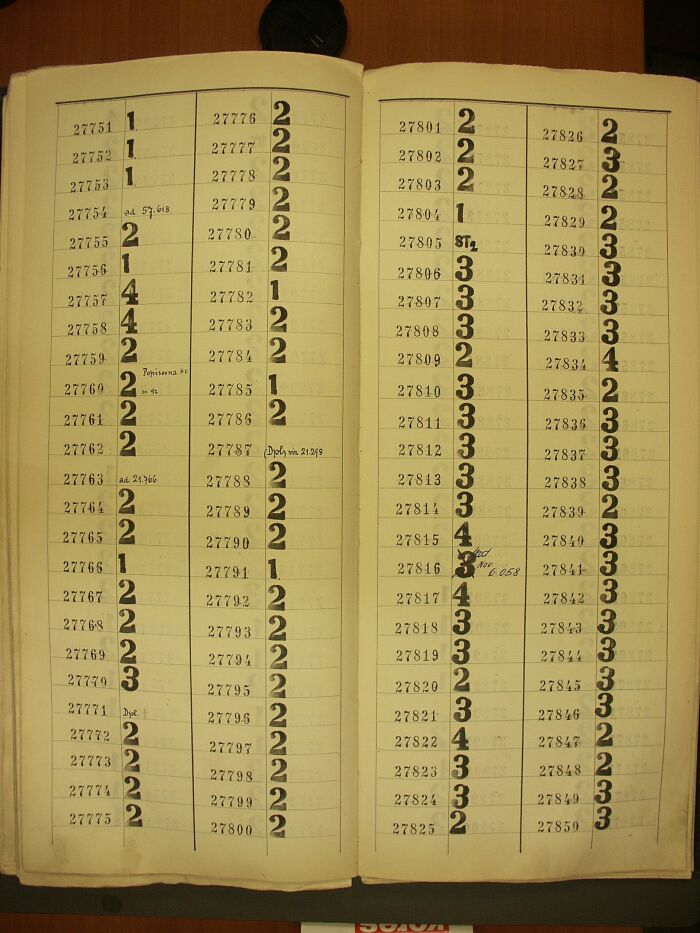 27751 1
27752 1
27753 1
27754 ad 57.618
27755 2
27756 1
27757 4
27758 4
27759 2
27760 2 Popisovna
27761 2
27762 2
27763 ad 21.766
27764 2
27765 2
27766 1
27767 2
27768 2
27769 2
27770 3
27771 Dpl.
27772 2
27773 2
27774 2
27775 2
27776 2
27777 2
27778 2
27779 2
27780 2
27781 2
27782 1
27783 2
27784 2
27785 1
27786 2
27787 (Dpl) viz 21.298
27788 2
27789 2
27790 2
27791 1
27792 2
27793 2
27794 2
27795 2
27796 2
27797 2
27798 2
27799 2
27800 2
27801 2
27802 2
27803 2
27804 1
27805 ST2
27806 3
27807 3
27808 3
27809 2
27810 3
27811 3
27812 3
27813 3
27814 3
27815 4
27816 3 Nov. 6.058
27817 4
27818 3
27819 3
27820 2
27821 3
27822 4
27823 3
27824 3
27825 2
27826 2
27827 3
27828 2
27829 2
27830 3
27831 3
27832 3
27833 3
27834 4
27835 2
27836 3
27837 3
27838 3
27839 2
27840 3
27841 3
27842 3
27843 3
27844 3
27845 3
27846 3
27847 2
27848 2
27849 3
27850 3